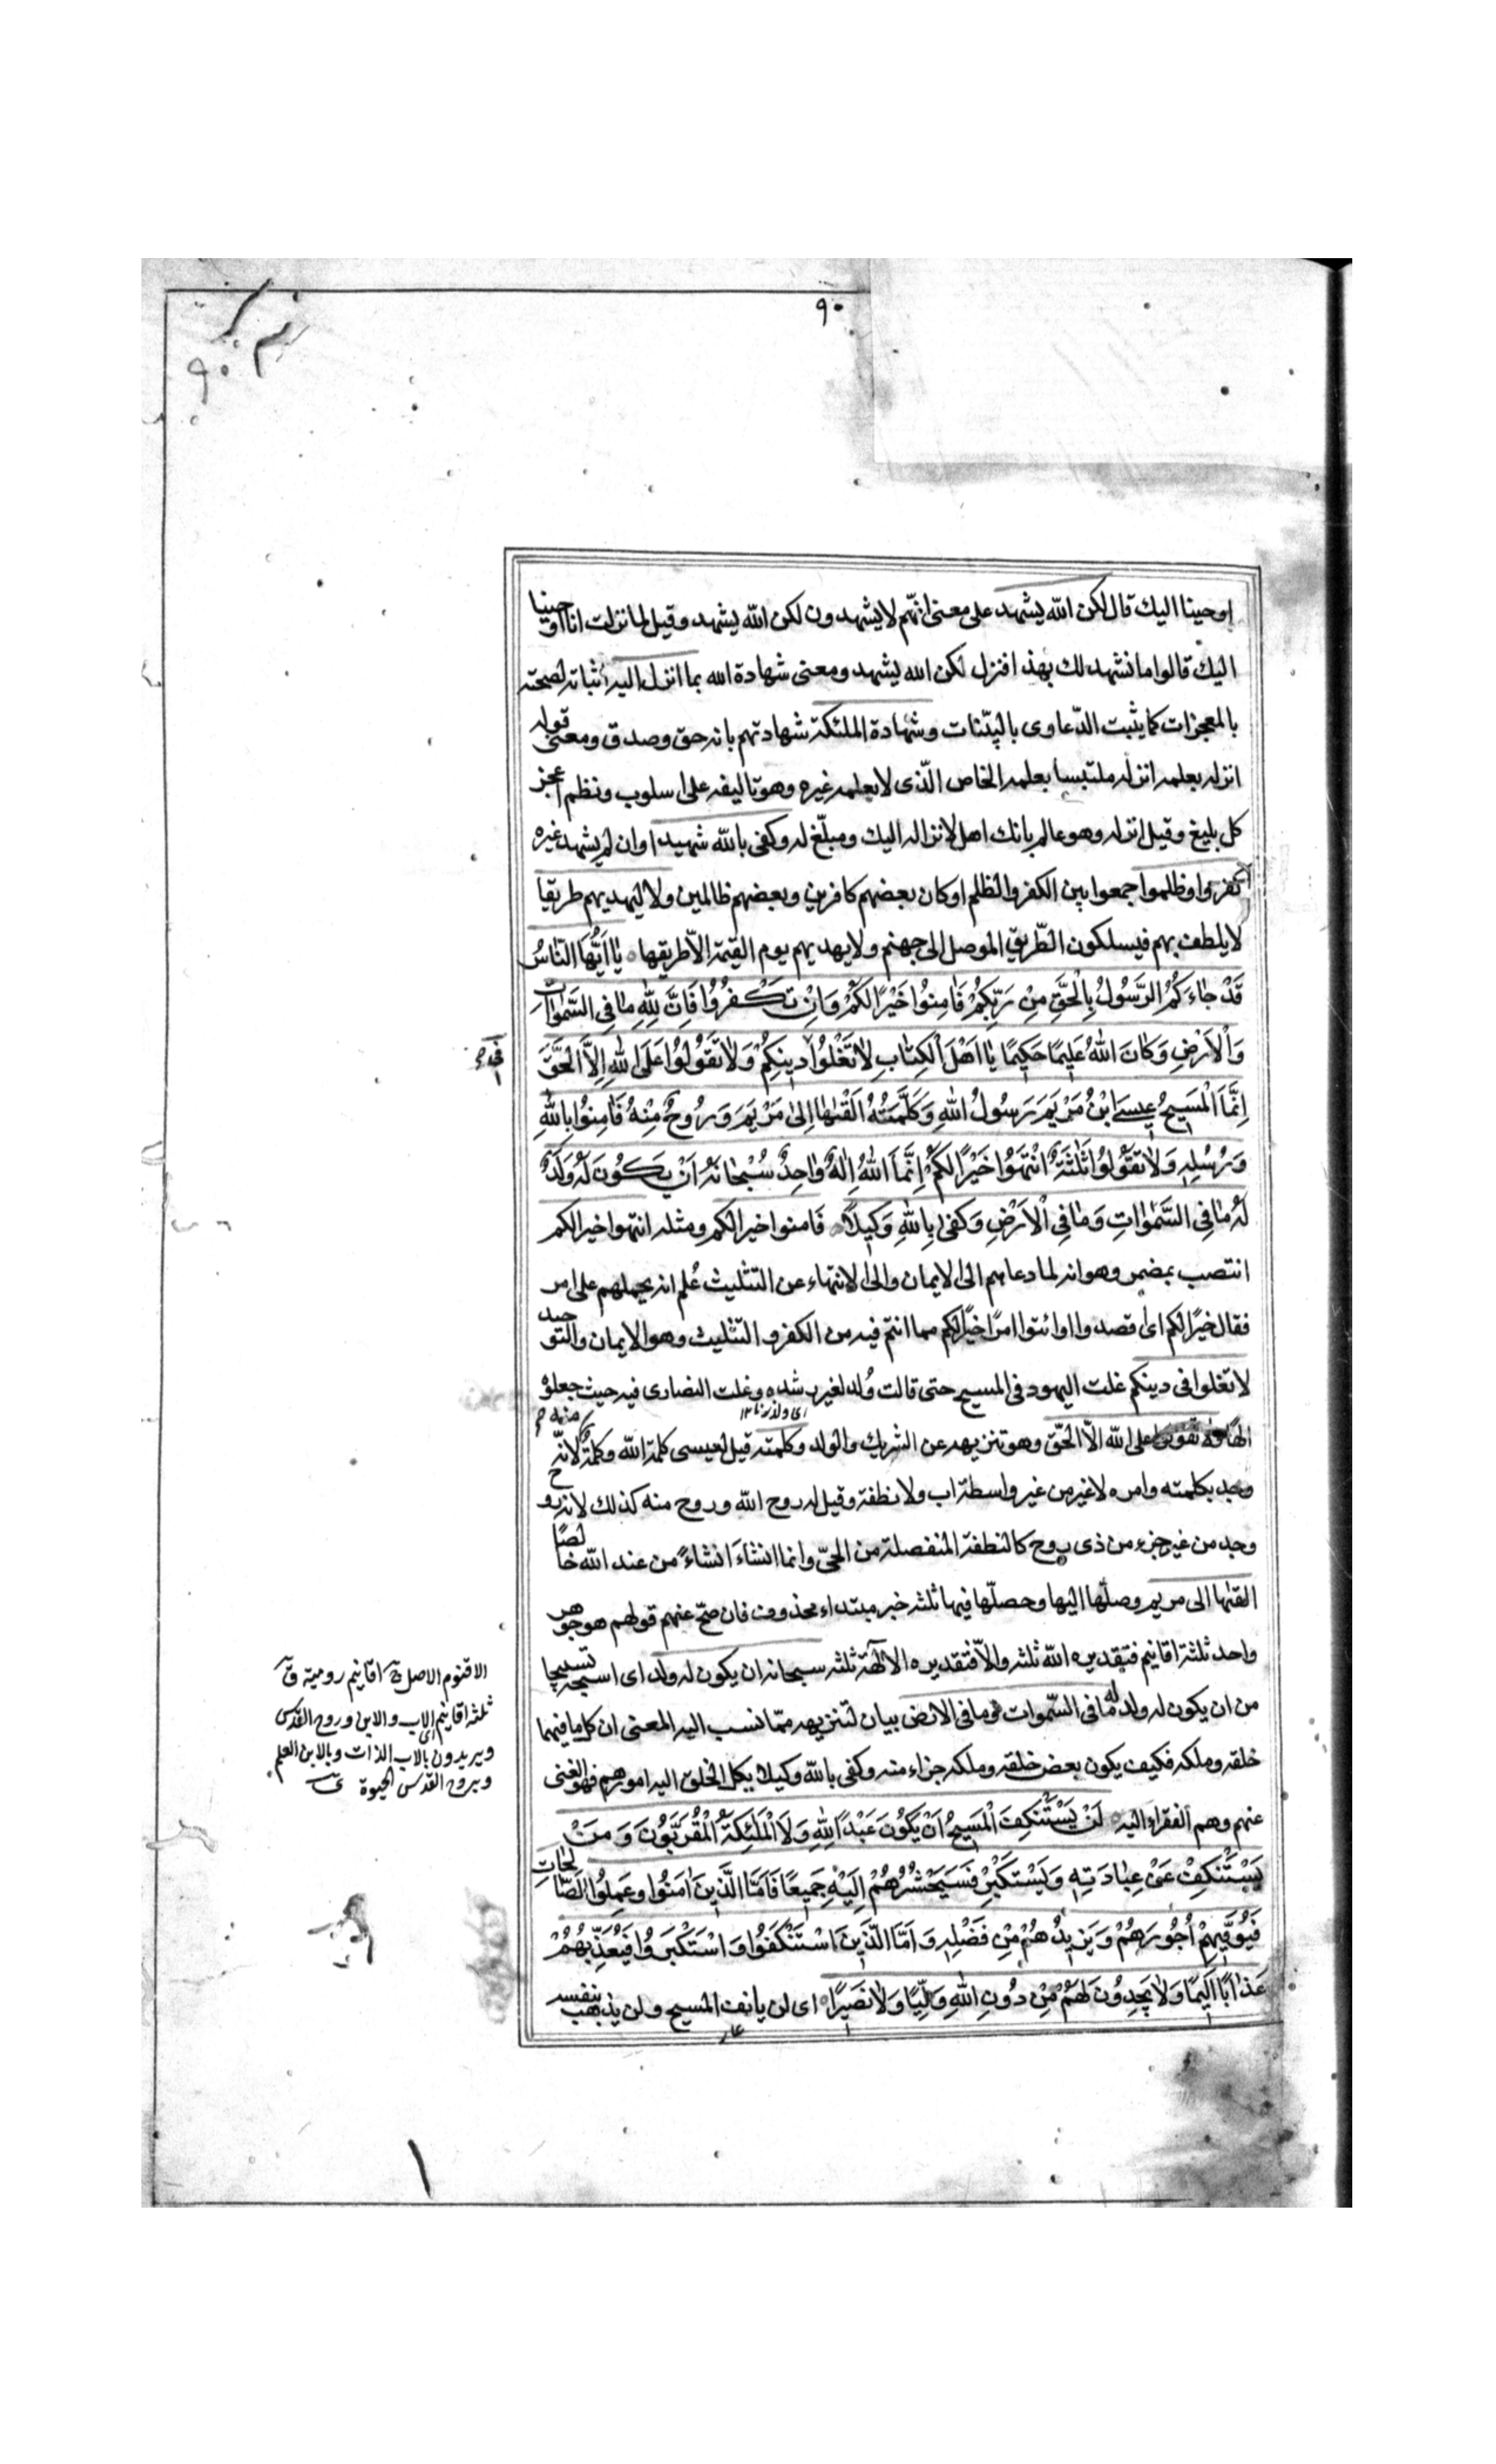 ٩٠
٩٠
اوحينا اليك قال لكن الله يشهد على معنى انهم لا يشهدون لكن الله يشهد وقيل لما نزلت انا اوحينا
اليك قالوا ما نشهد لك بهذا فنزل لكن الله يشهد ومعنى شهادة الله بما انزل اليه اثباته لصحته
بالمعجزات كما يثبت الدّعاوى بالبيّنات وشهادة الملئكة شهادتهم بانه حق وصدق ومعنى قوله
انزله بعلمه انزله ملتبسا بعلمه الخاص الّذى لا يعلمه غيره وهو تاليفه على اسلوب ونظم اعجز
كل بليغ وقيل انزله وهو عالم بانك اهل لانزاله اليك ومبلّغ له وكفى بالله شهيدا وان لم يشهد غيره
كفروا وظلموا جمعوا بين الكفر والظلم او كان بعضهم كافرين وبعضهم ظالمين ولا ليهديهم طريقا
لا يلطف بهم فيسلكون الطّريق الموصل الى جهنم ولا يهديهم يوم القيمة الّا طريقها يٰا اَيُّهَا النّٰاسُ
قَدْ جٰاءَكُمُ الرَّسُولُ بِالْحَقِّ مِنْ رَبِّكُمْ فَاٰمِنُوا خَيْرًا لَكُمْ وَاِنْ تَكْفُرُوا فَاِنَّ لِلّٰهِ مٰا فِى السَّمٰوٰاتِ
وَالْاَرْضِ وَكٰانَ اللّٰهُ عَلِيمًا حَكِيمًا يٰا اَهْلَ الْكِتٰابِ لٰا تَغْلُوا دِينِكُمْ وَلٰا تَقُولُوا عَلَى اللّٰهِ اِلَّا الْحَقَّ
اِنَّمَا الْمَسِيحُ عِيسَى ابْنُ مَرْيَمَ رَسُولُ اللّٰهِ وَكَلِمَتُهُ اَلْقٰىهٰا اِلىٰ مَرْيَمَ وَرُوحٌ مِنْهُ فَاٰمِنُوا بِاللّٰهِ
وَرُسُلِهِ وَلٰا تَقُولُوا ثَلٰثَةٌ انْتَهُوا خَيْرًا لَكُمْ اِنَّمَا اللّٰهُ اِلٰهٌ وٰاحِدٌ سُبْحٰانَهُ اَنْ يَكُونَ لَهُ وَلَدٌ
لَهُ مٰا فِى السَّمٰوٰاتِ وَمٰا فِى الْاَرْضِ وَكَفىٰ بِاللّٰهِ وَكِيلًا فامنوا خيرا لكم ومثله انتهوا خيرا لكم
انتصب بمضمر وهو انه لما دعاهم الى الايمان والى الانتهاء عن التثليث عُلم انه يحملهم على امر
فقال خيرًا لكم اى اقصدوا او ائتوا امرًا خيرًا لكم مما انتم فيه من الكفر والتثليث وهو الايمان والتوحيد
لا تغلوا فى دينكم غلت اليهود فى المسيح حتى قالت وُلد لغير رشده وغلت النصارى فيه حيث جعلوه
اى ولد زنا ١٢
الهًا ولا تقولوا على الله الّا الحقّ وهو تنزيهه عن الشريك والولد وكلمته قيل لعيسى كلمة الله وكلمة منه لانّه
وجد بكلمته وامره لا غير من غير واسطة اب ولا نطفة وقيل له روح الله وروح منه كذلك لانه ذو روح
وجد من غير جزء من ذى روح كالنطفة المنفصلة من الحىّ وانما انشاَ انشاءً من عند الله خالصًا
القيٰها الى مريم وصلّها اليها وحصلّها فيها ثلثه خبر مبتداء محذوف فان صحّ عنهم قولهم هو جوهر
واحد ثلثة اقانيم فتقديره الله ثلثه والّا فتقديره الالٰهة ثلثه سبحانه ان يكون له ولد اى اسبحه تسبيحا
من ان يكون له ولد له ما فى السّموات وما فى الارض بيان لتنزيهه ممّا نسب اليه المعنى ان كل ما فيهما
خلقه وملكه فكيف يكون بعض خلقه وملكه جزاء منه وكفى بالله وكيلا يكل الخلق اليه امورهم فهو الغنى
عنهم وهم الفقراء اليه لَنْ يَسْتَنْكِفَ الْمَسِيحُ اَنْ يَكُونَ عَبْدًا لِلّٰهِ وَلَا الْمَلٰئِكَةُ الْمُقَرَّبُونَ وَمَنْ
يَسْتَنْكِفْ عَنْ عِبٰادَتِهِ وَيَسْتَكْبِرْ فَسَيَحْشُرُهُمْ اِلَيْهِ جَمِيعًا فَاَمَّا الَّذِينَ اٰمَنُوا وَعَمِلُوا الصّٰالِحٰاتِ
فَيُوَفِّيهِمْ اُجُورَهُمْ وَيَزِيدُهُمْ مِنْ فَضْلِهِ وَاَمَّا الَّذِينَ اسْتَنْكَفُوا وَاسْتَكْبَرُوا فَيُعَذِّبُهُمْ
عَذٰابًا اَلِيمًا وَلٰا يَجِدُونَ لَهُمْ مِنْ دُونِ اللّٰهِ وَلِيًّا وَلٰا نَصِيرًا اى لن يانف المسيح ولن يذهب بنفسه
الاقنوم الاصل ج اقانيم رومية ق
ثلثة اقانيم اى الاب والابن وروح القدس
ويريدون بالاب الذات وبالابن العلم
وبروح القدس الحيوة